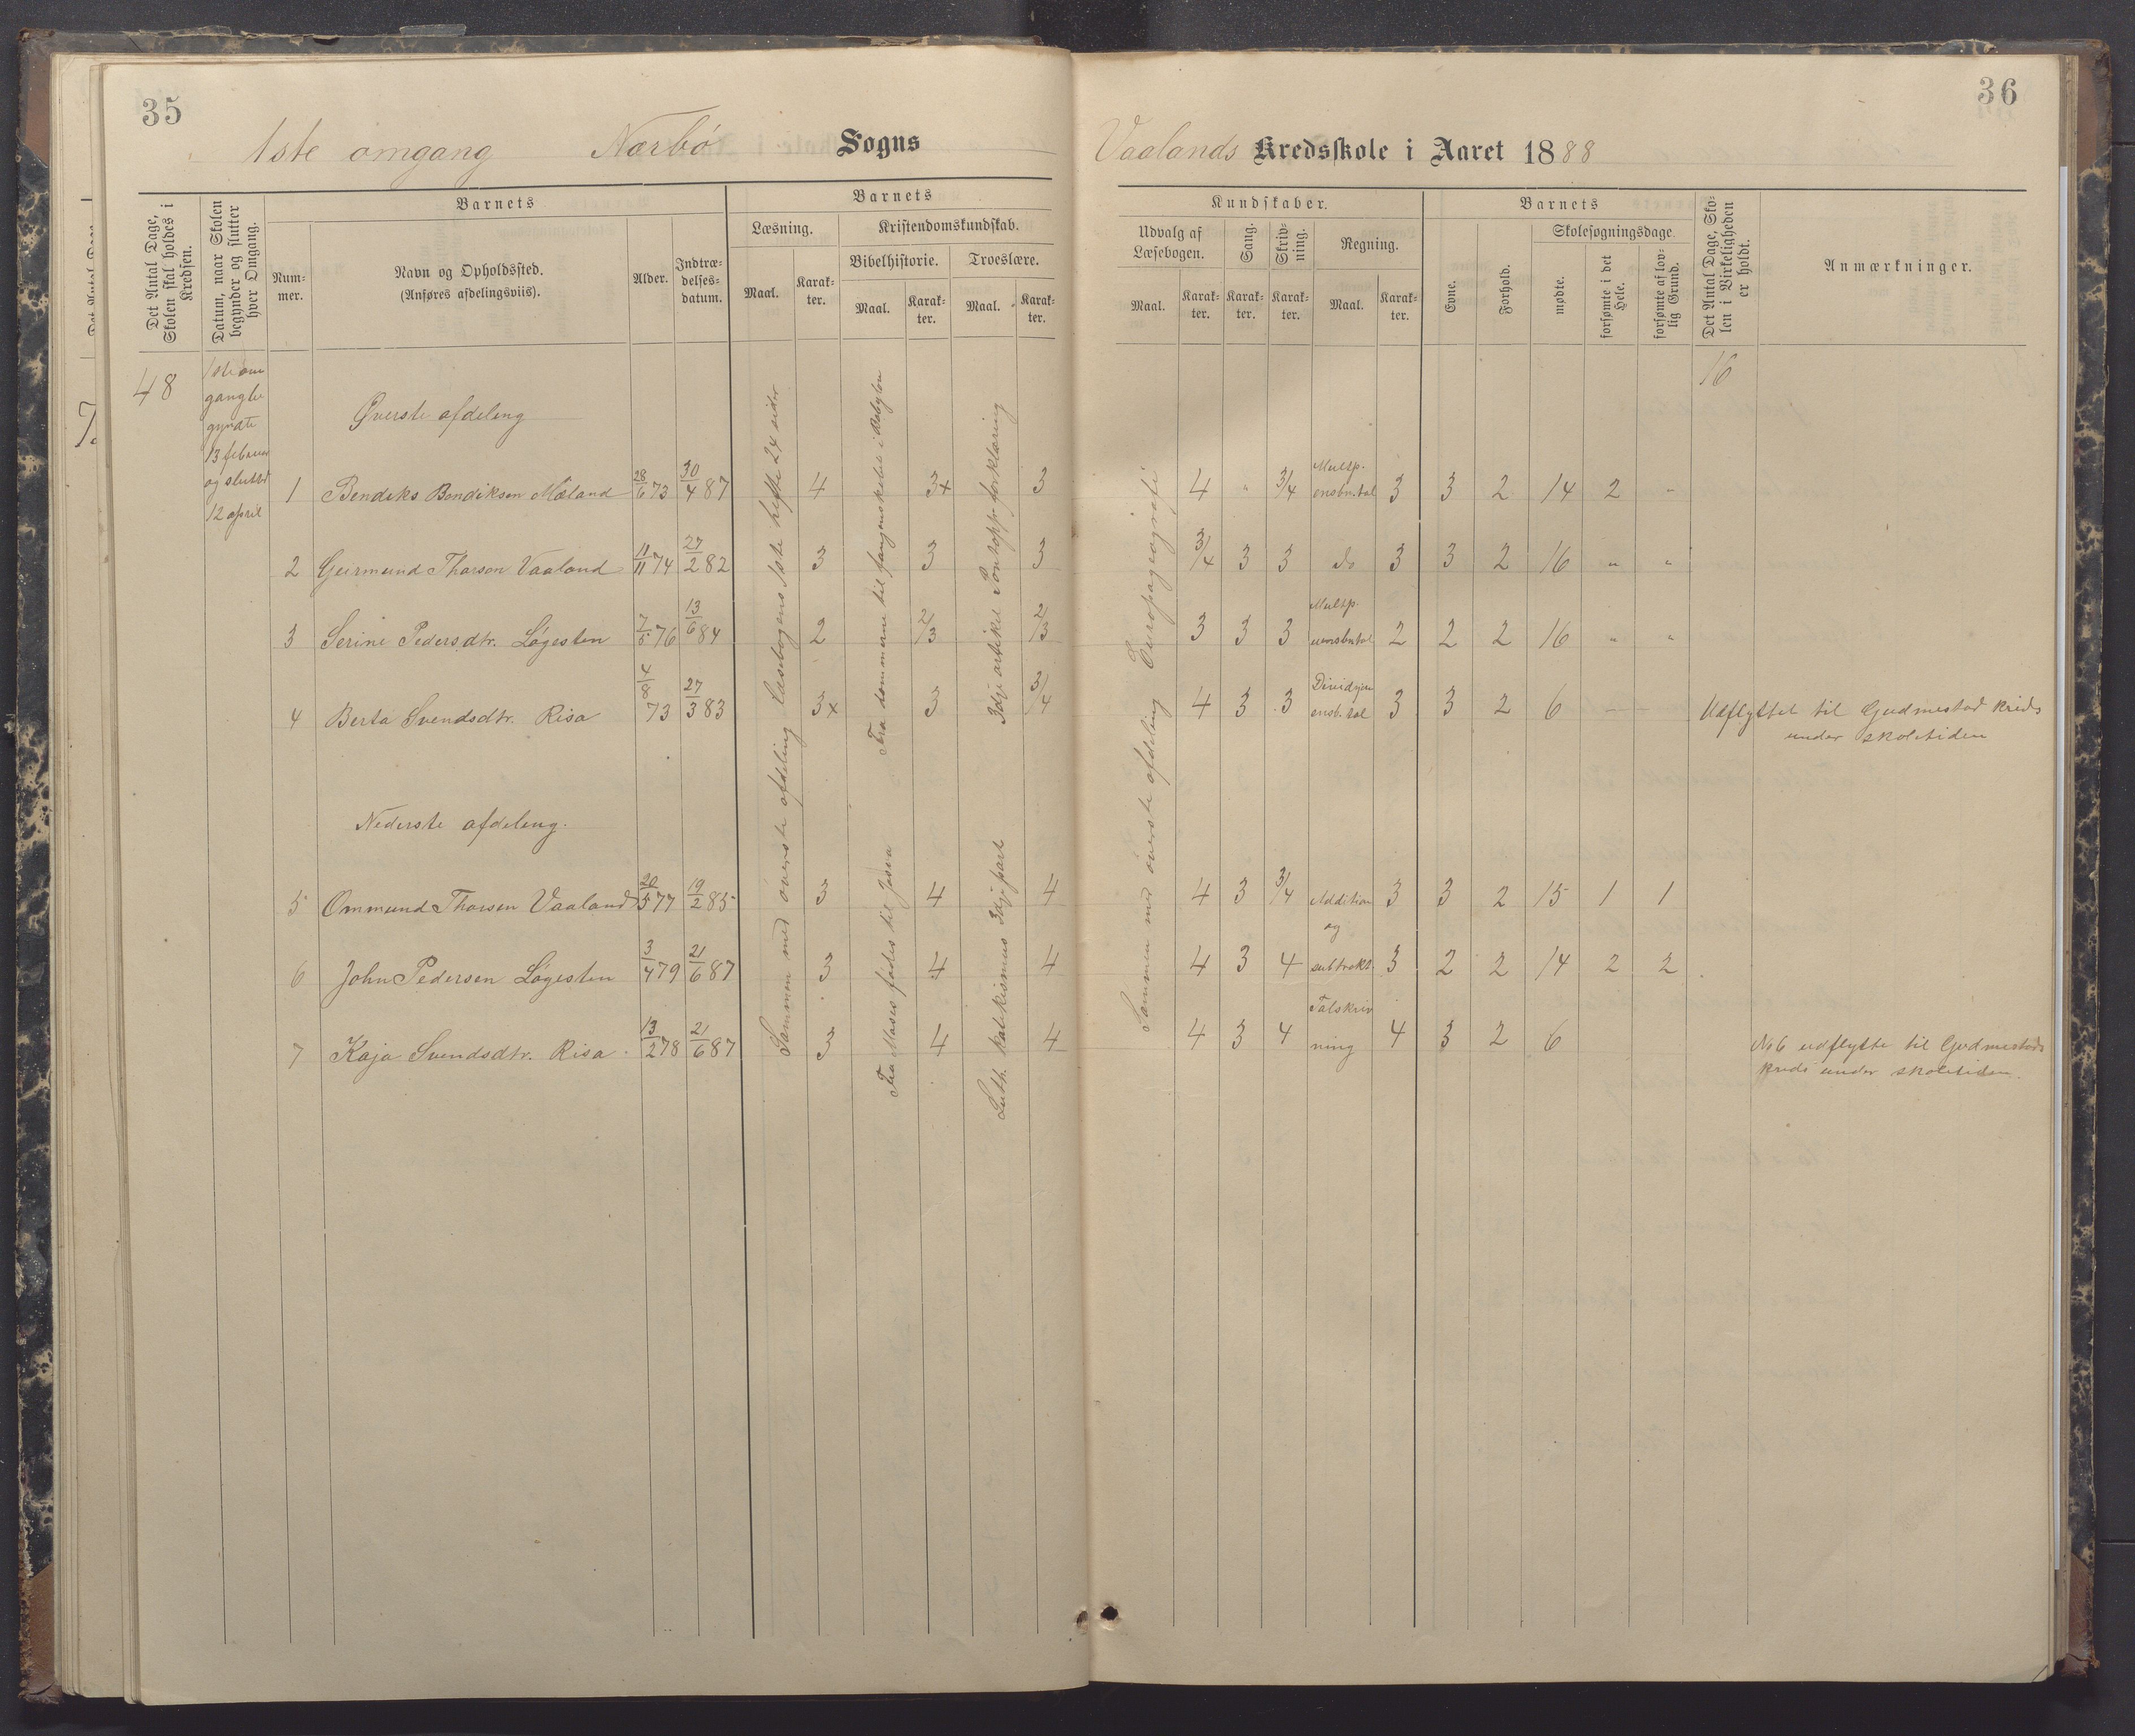 35
1ste omgang Nærbø Sogns
Det Antal Dage, Skolen skal holdes i Kredsen.
Datum, naar Skolen begynder og slutter hver Omgang.
Barnets
Nummer.
Navn og Opholdssted.
(Anføres afdelingsviis).
Alder.
Indtrædelsesdatum.
Barnets
Læsning.
Kristendomskundskab.
Bibelhistorie.
Troeslære.
Maal. Karakter. Maal. Karakter. Maal. Karakter.
48
1ste om
gang be
gyndte
13 februar
og sluttet
12 april
Øverste afdeling
1 Bendiks Bendiksen Mæland 28/6 73 30/4 87 4 3x 3
2 Geirmund Thorsen Vaaland 11/11 74 27/2 82 3 3 3
3 Serine Pedersdtr. Løgesten 7/5 76 13/6 84 2 2/3 2/3
4 Berta Svendsdtr. Risa 4/8 73 27/3 83 3x 3 3/4
Nederste afdeling.
5 Ommund Thorsen Vaaland 20/5 77 19/2 85 3 4 4
6 John Pedersen Løgesten 3/4 79 21/6 87 3 4 4
7 Kaja Svendsdtr. Risa 13/2 78 21/6 87 3 4 4
Sammen med øverste afdeling Læsebogens 1ste hefte 24 sider
Fra dommerne til fangenskabet i Babylon
Fra Moses fødes til Josva
3dje artikel Pontopp. forklaring
Luth. katekismus 3dje part
36
Vaalands Kredsskole i Aaret 1888
Kundskaber.
Udvalg af Læsebogen.
Sang.
Skrivning.
Regning.
Maal. Karakter. Karakter. Karakter. Maal. Karakter.
Barnets
Evne.
Forhold.
Skolesøgningsdage.
mødte.
forsømte i det Hele.
forsømte af lovlig Grund.
Det Antal Dage, Skolen i Virkeligheden er holdt.
Anmærkninger.
16
4 " 3/4 Multp. ensbn.tal 3 3 2 14 2 -
3/4 3 3 do 3 3 2 16 " "
3 3 3 Multp. uensbntal 2 2 2 16 " "
4 3 3 Dividsjon ensb. tal 3 3 2 6 - - Udflyttet til Gudmestad kreds
under skoletiden
4 3 3/4 Addition 3 3 2 15 1 1
og
4 3 4 subtrakt. 3 2 2 14 2 2
4 3 4 Talskriv
ning 4 3 2 6 No 6 udflytte til Gudmestads
kreds under skoletiden.
Sammen med øverste afdeling Europageografi